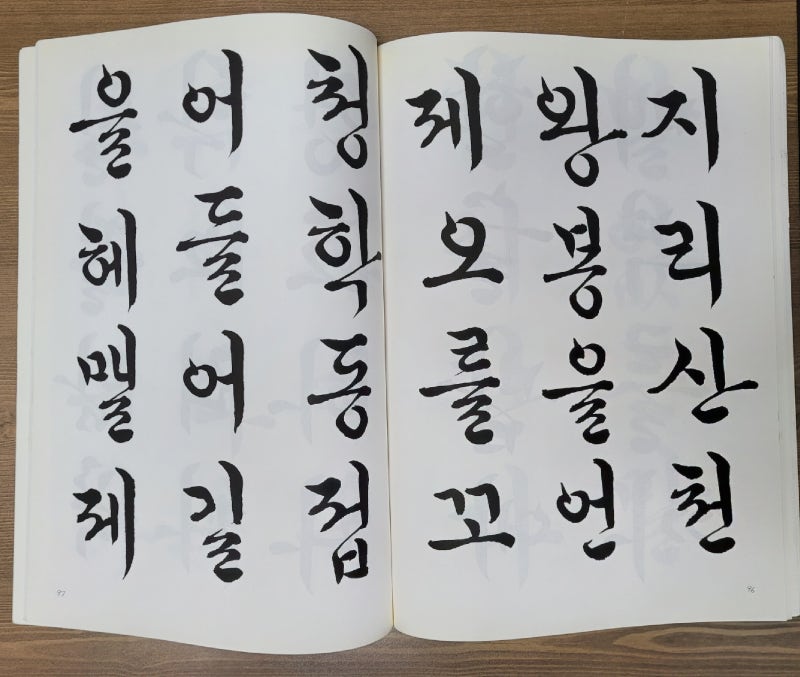 지리산천
왕봉을언
제오를꼬
96
청학동접
어들어길
을헤맬제
97